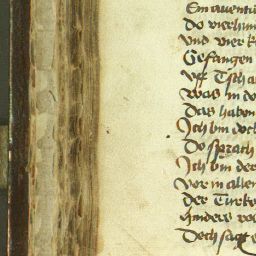 Ein auentü
Do vierhun
vnd vier k
Gefangen
vff Tisch a
was in do
Das haben
Ich bin doc
Do sprach
Ich bin der
vor in allen
Der Türke
hinders vo
Doch sagt e